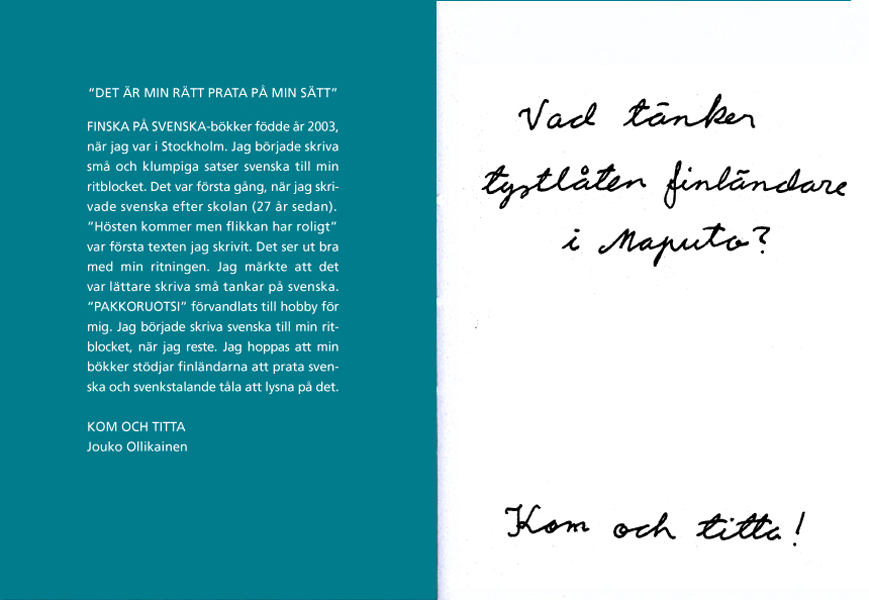 ”DET ÄR MIN RÄTT PRATA PÅ MIN SÄTT”
FINSKA PÅ SVENSKA-bökker födde år 2003,
när jag var i Stockholm. Jag började skriva
små och klumpiga satser svenska till min
ritblocket. Det var första gång, när jag skri-
vade svenska efter skolan (27 år sedan).
”Hösten kommer men flikkan har roligt”
var första texten jag skrivit. Det ser ut bra
med min ritningen. Jag märkte att det
var lättare skriva små tankar på svenska.
”PAKKORUOTSI” förvandlats till hobby för
mig. Jag började skriva svenska till min rit-
blocket, när jag reste. Jag hoppas att min
bökker stödjar finländarna att prata sven-
ska och svenkstalande tåla att lysna på det.
KOM OCH TITTA
Jouko Ollikainen
Vad tänker
tystlåten finländare
i Maputo?
Kom och titta!